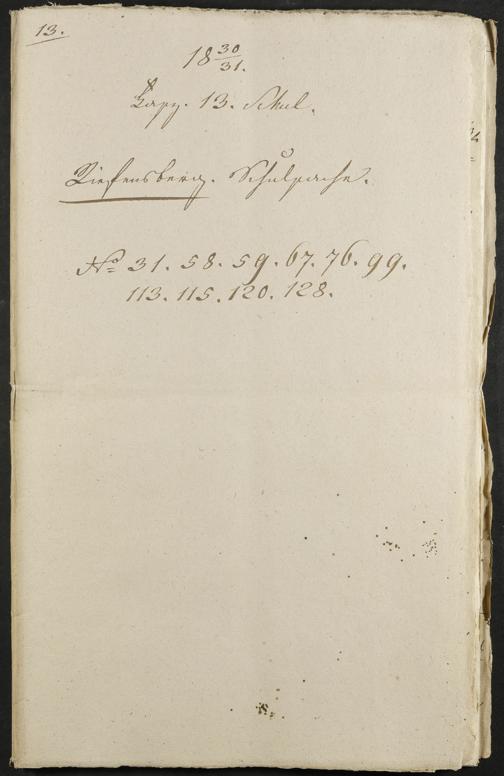 13.
18 30/31.
13. Schul.
Riefensberg. Schulsache.
No 31. 58. 59. 67. 76. 99.
113. 115. 120. 128.